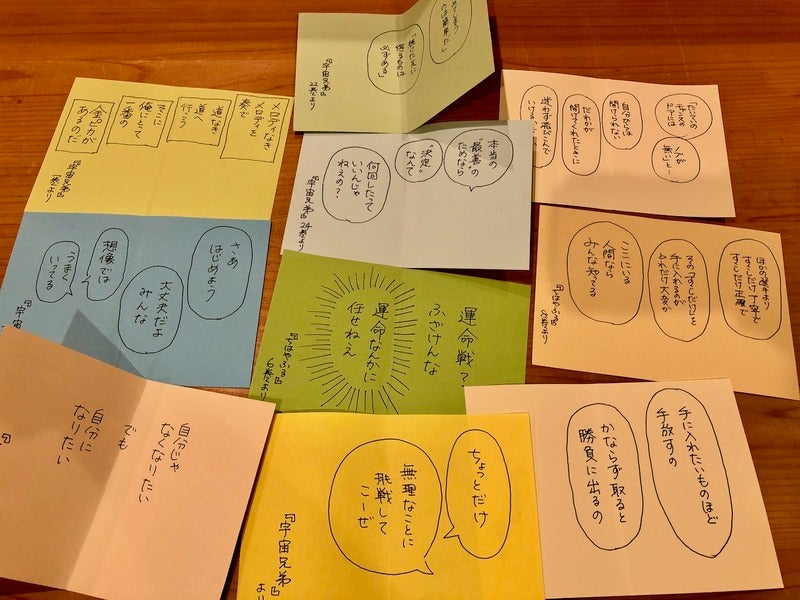 「降りた先に
得るものは
必ずある」
『宇宙兄弟』
22巻より
メロディなき
メロディを
奏で
道なき
道へ
行こう
そこに
俺にとって
一番の
金ピカが
あるのだ
『宇宙兄弟』
1巻より
チャンスの
ドアには
ノブが
無い
自分からは
開けられない
だれかが
開けてくれたときに
迷わず飛びこんで
いけるか
本当の
"最善"の
ためなら
"決定"
なんて
何回したって
いいんじゃ
ねえの？
『宇宙兄弟』24巻より
さあ
はじめよう
大丈夫だよ
みんな
想像では
うまく
いってる
『宇宙
ほかの選手より
すこしだけ丁寧で
すこしだけ正確で
その「すこしだけ」を
手に入れるのが
どれだけ大変か
ここにいる
人間なら
みんな知ってる
『ちはやふる』
8巻より
運命戦？
ふざけんな
運命なんかに
任せねえ
『ちはやふる』
6巻より
自分じゃ
なくなりたい
でも
自分に
なりたい
ちょっとだけ
無理なことに
挑戦して
こーぜ
『宇宙兄弟』
より
手に入れたいものほど
手放すの
かならず取ると
勝負に出るの